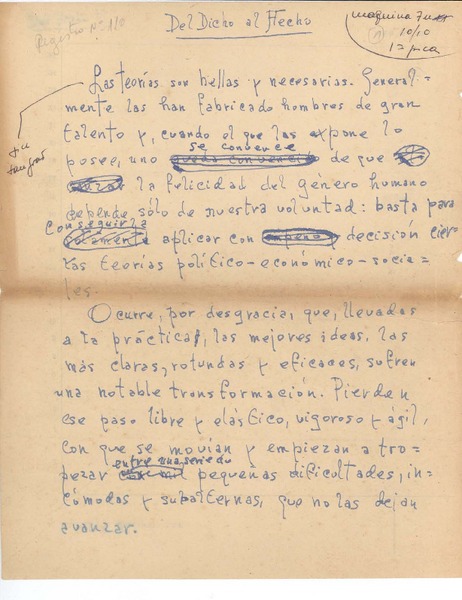 Registro Nº 110
Del Dicho al Hecho
maquina
10/10
Las teorías son bellas y necesarias. General-
mente las han fabricado hombres de gran
talento y, cuando el que las expone lo
se convence
posee, uno queda convencido de que
la felicidad del género humano
depende sólo de nuestra voluntad: basta para
conseguirla
solamente aplicar con empeño y decisión cier-
tas teorías político-económico-socia-
les.
Ocurre, por desgracia, que, llevadas
a la práctica, las mejores ideas, las
más claras, rotundas y eficaces, sufren
una notable transformación. Pierden
ese paso libre y elástico, vigoroso y ágil,
con que se movían y empiezan a tro-
entre una serie de
pezar con mil pequeñas dificultades, in-
cómodas y subalternas, que no las dejan
avanzar.